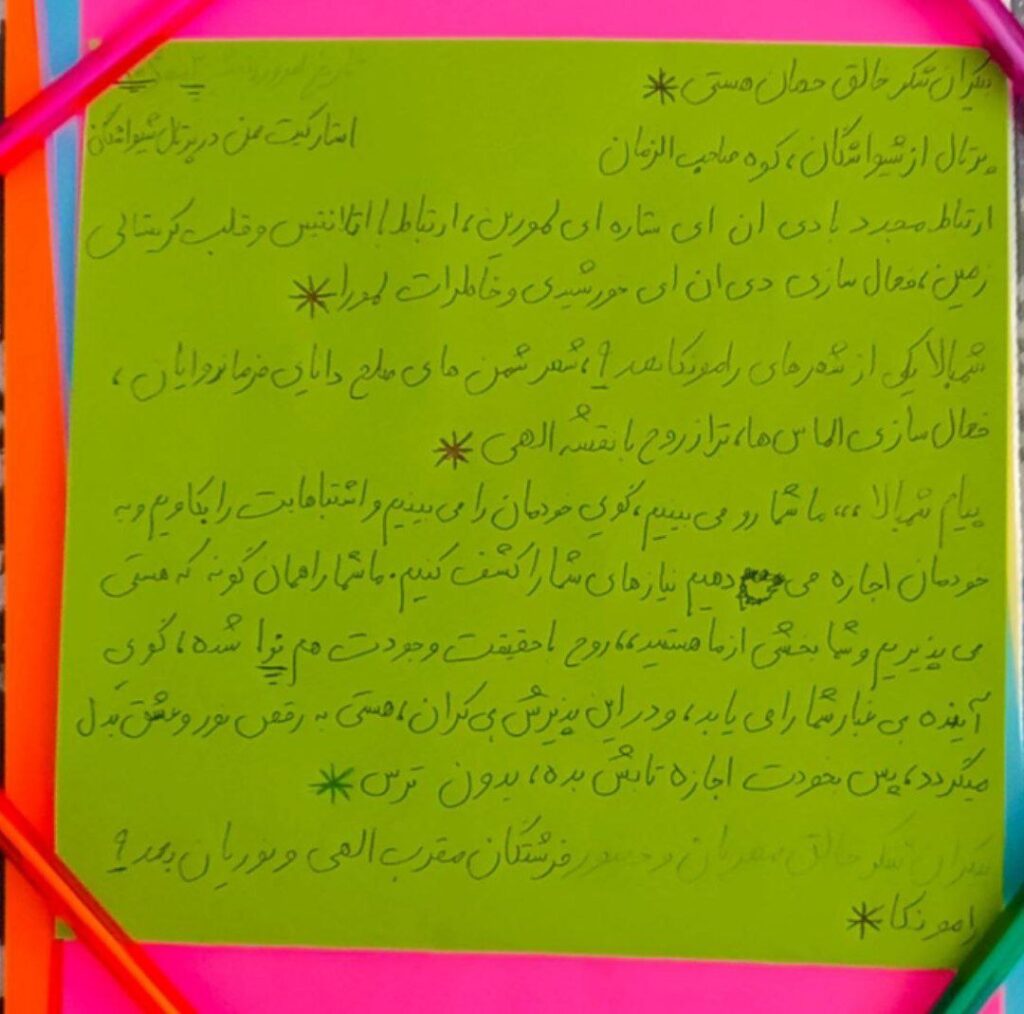 بیکران شکر خالق جهان هستی *
استارگیت عدن در پرتال شیواشگان
پرتال از شیواشگان، کوه صاحب الزمان
ارتباط مجدد با دی ان ای ستاره ای لمورین، ارتباط با اتلانتیس و قلب کریستالی
زمین، فعال سازی دی ان ای خورشیدی و خاطرات لمورا *
شمبالا یکی از شهرهای رامونکا بعد ۹، شهر شمن های صلح دانای فرمانروایان،
فعال سازی الماس ها، تراز روح با نقشه الهی *
پیام شمبالا ،،، ما شما رو می بینیم، گوی خودمان را می بینیم و اشتباهات را بکاویم و به
خودمان اجازه می دهیم نیازهای شما را کشف کنیم. ما شما را همان گونه که هستی
می پذیریم و شما بخشی از ما هستید،، روح با حقیقت وجودت هم نوا شده، گوی
آینده بی غبار شما را می یابد، و در این پذیرش بی کران، هستی به رقص نور و عشق بدل
میگردد، پس بخودت اجازه تابش بده، بدون ترس *
بیکران شکر خالق مهربان و حضور فرشتگان مقرب الهی و نوریان بعد ۹
رامونکا *